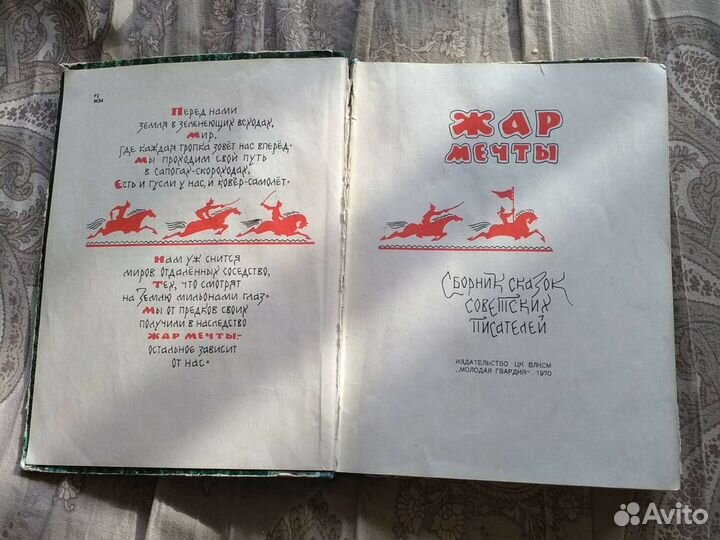 Р2
Ж34
Перед нами
земля в зеленеющих всходах,
Мир,
Где каждая тропка зовёт нас вперёд.
Мы проходим свой путь
в сапогах-скороходах,
Есть и гусли у нас, и ковёр-самолёт.
Нам уж снится
миров отдалённых соседство,
Тех, что смотрят
на Землю мильонами глаз.
Мы от предков своих
получили в наследство
ЖАР МЕЧТЫ,-
остальное зависит
от нас.
ЖАР
МЕЧТЫ
Сборник сказок
советских
писателей
ИЗДАТЕЛЬСТВО ЦК ВЛКСМ
„МОЛОДАЯ ГВАРДИЯ“. 1970
Avito